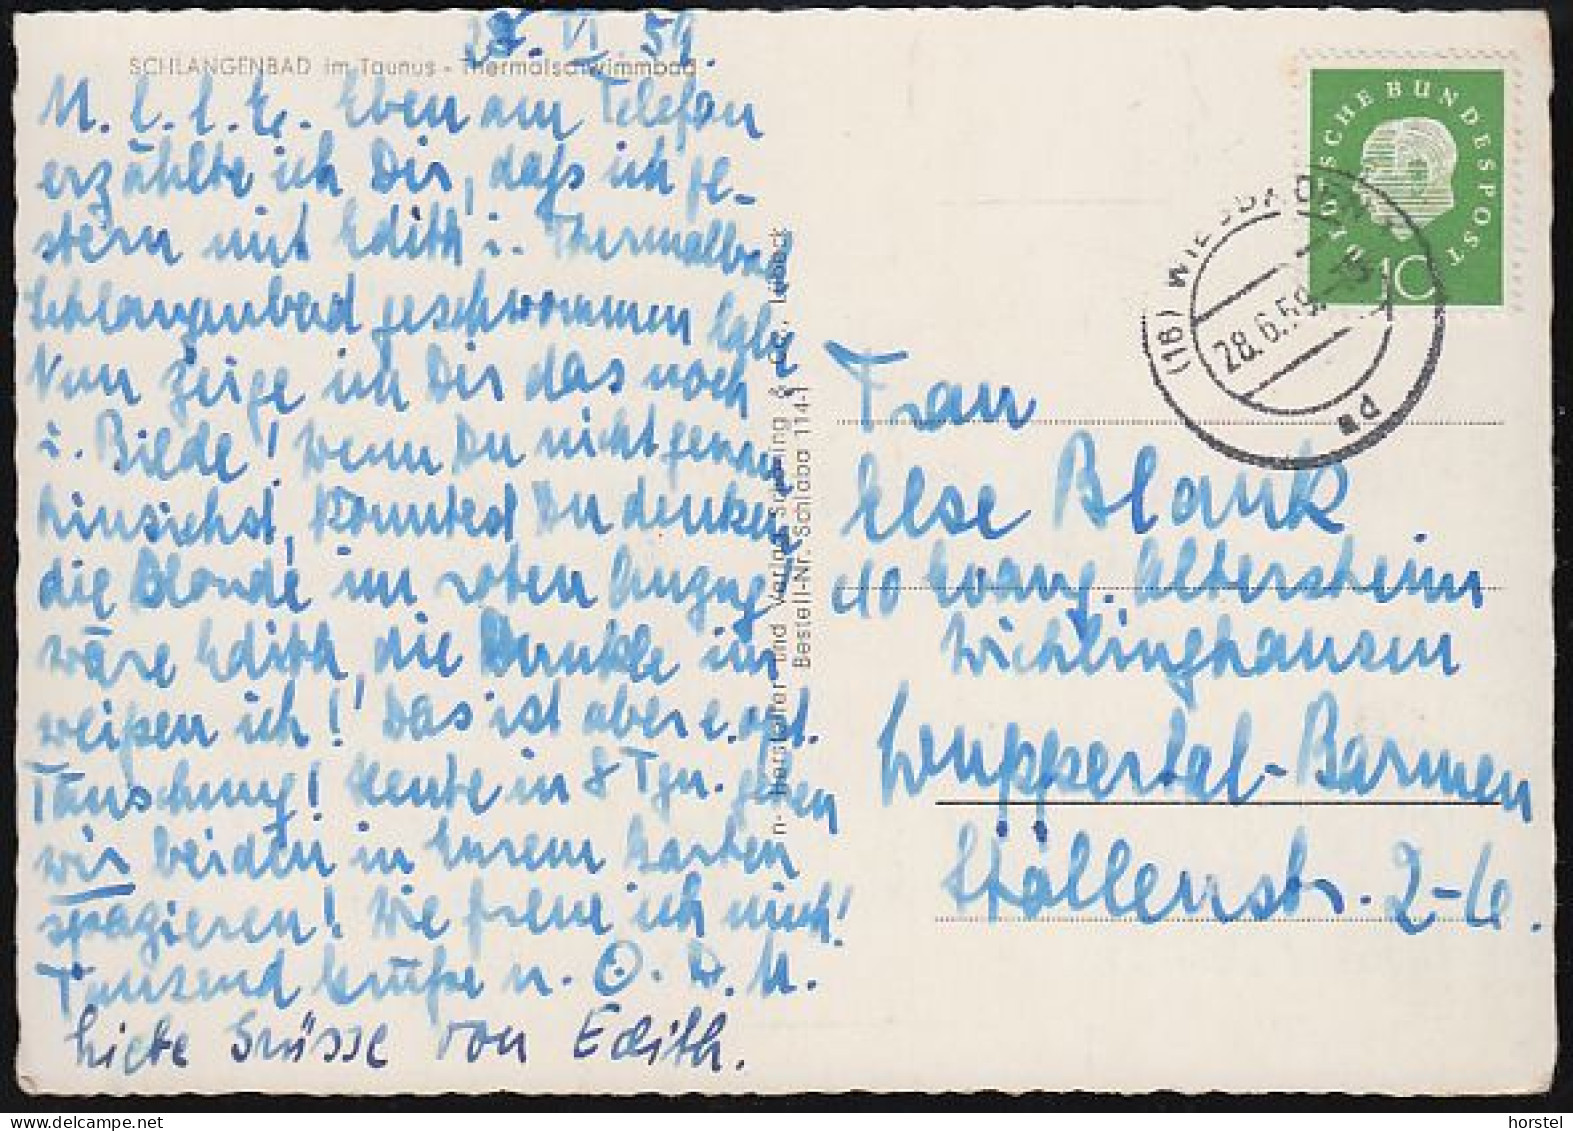 28. VI. 59.
SCHLANGENBAD im Taunus - Thermalschwimmbad
M. l. l. E. Eben am Telefon
erzählte ich Dir, daß ich ge-
stern mit Edith i. Thermalbad
Schlangenbad geschwommen habe
Nun zeige ich Dir das noch
i. Bilde! Wenn Du nicht genau
hinsiehst, könntest Du denken
die Blonde im roten Anzug
wäre Edith, die Dunkle im
weißen ich! Das ist aber e. opt.
Täuschung! Heute in 8 Tgn. gehen
wir beiden in Eurem Garten
spazieren! Wie freue ich mich!
Tausend Grüße u. O. D. M.
Liebe Grüsse von Edith.
Hersteller und Verlag Schöning & Co., Lübeck
Bestell-Nr. Schlaba 114-1
DEUTSCHE BUNDESPOST
10
(18) WIESBADEN
28.6.59.-15
Frau
Else Blank
c/o Evang. Altersheim
Wichlinghausen
Wuppertal-Barmen
Stollenstr. 2-6.
horstel